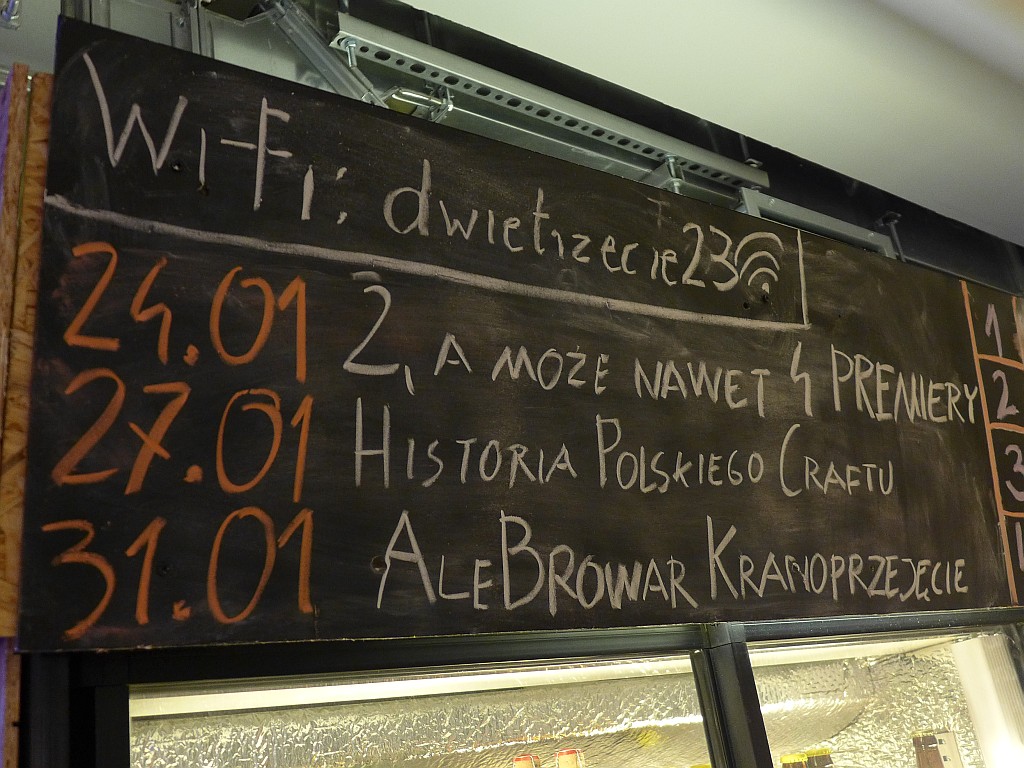 Wi-Fi: dwietrzecie23
24.01 2, A MOŻE NAWET 4 PREMIERY
27.01 HISTORIA POLSKIEGO CRAFTU
31.01 ALEBROWAR KRANOPRZEJĘCIE
1
2
3